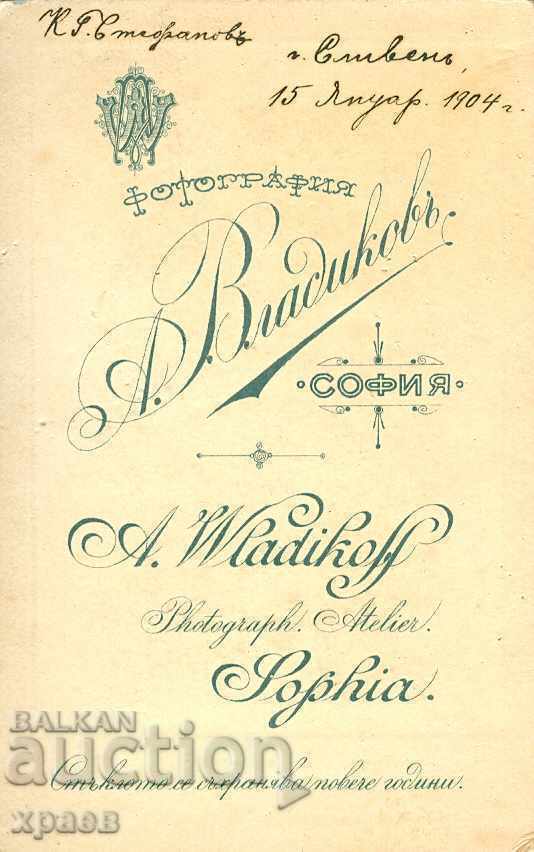 К. Г. Стефановъ
г. Сливенъ,
15 Януар. 1904 г.
ФОТОГРАФИЯ
А. Владиковъ.
СОФИЯ
A. Wladikoff
Photograph. Atelier.
Sophia.
BALKAN
auction
Стъклото се съхранява повече години.
храев